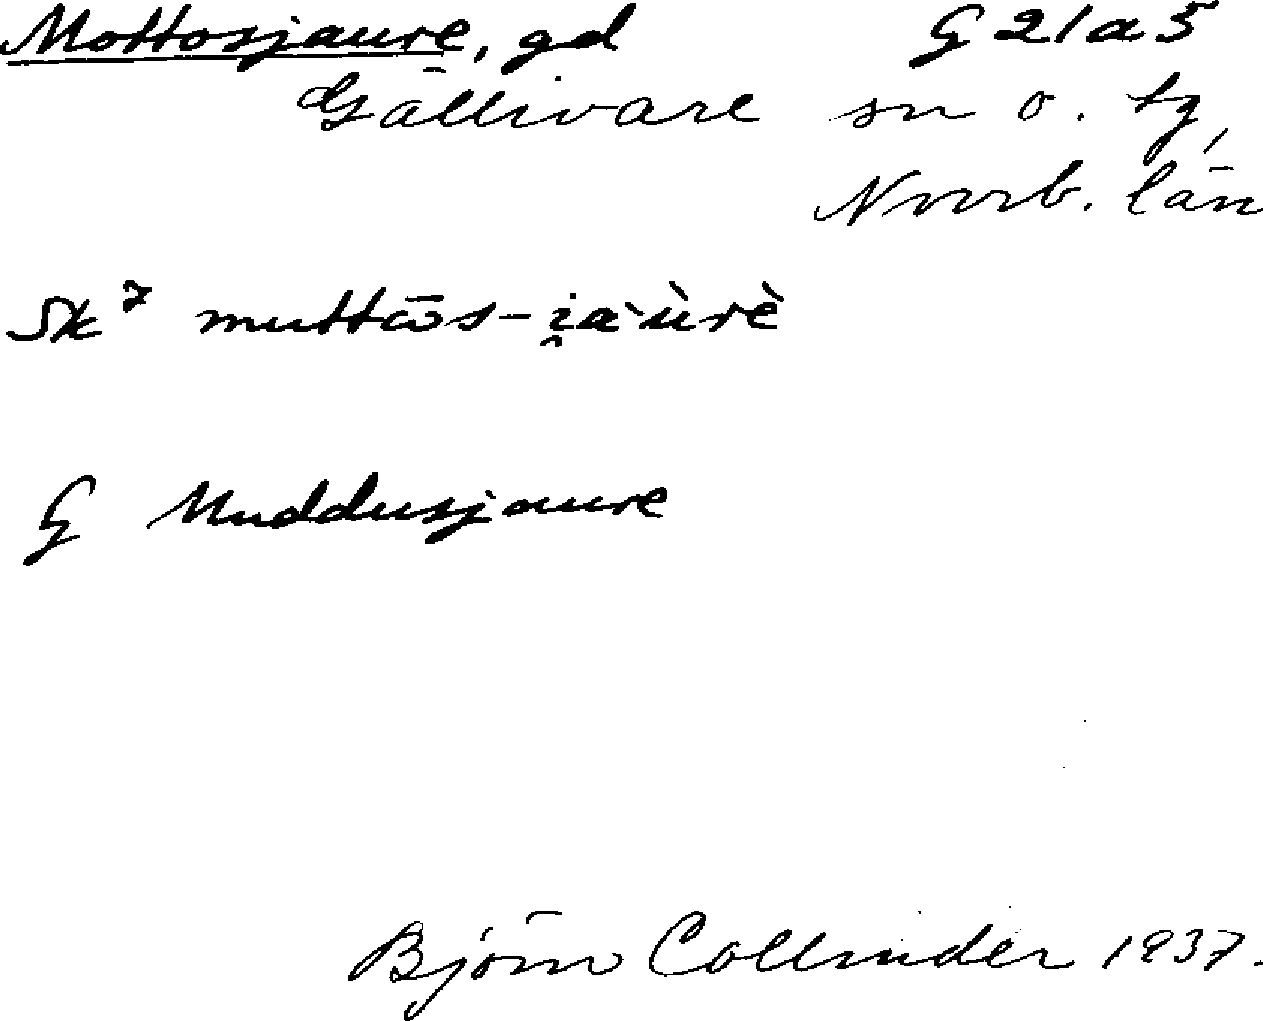 Mottosjaure, gd G 21a5
Gällivare sn o. tg,
Norrb. län
Sk⁷ muttōs-i̯a`ùrè
G Muddusjaure
Björn Collinder 1937.